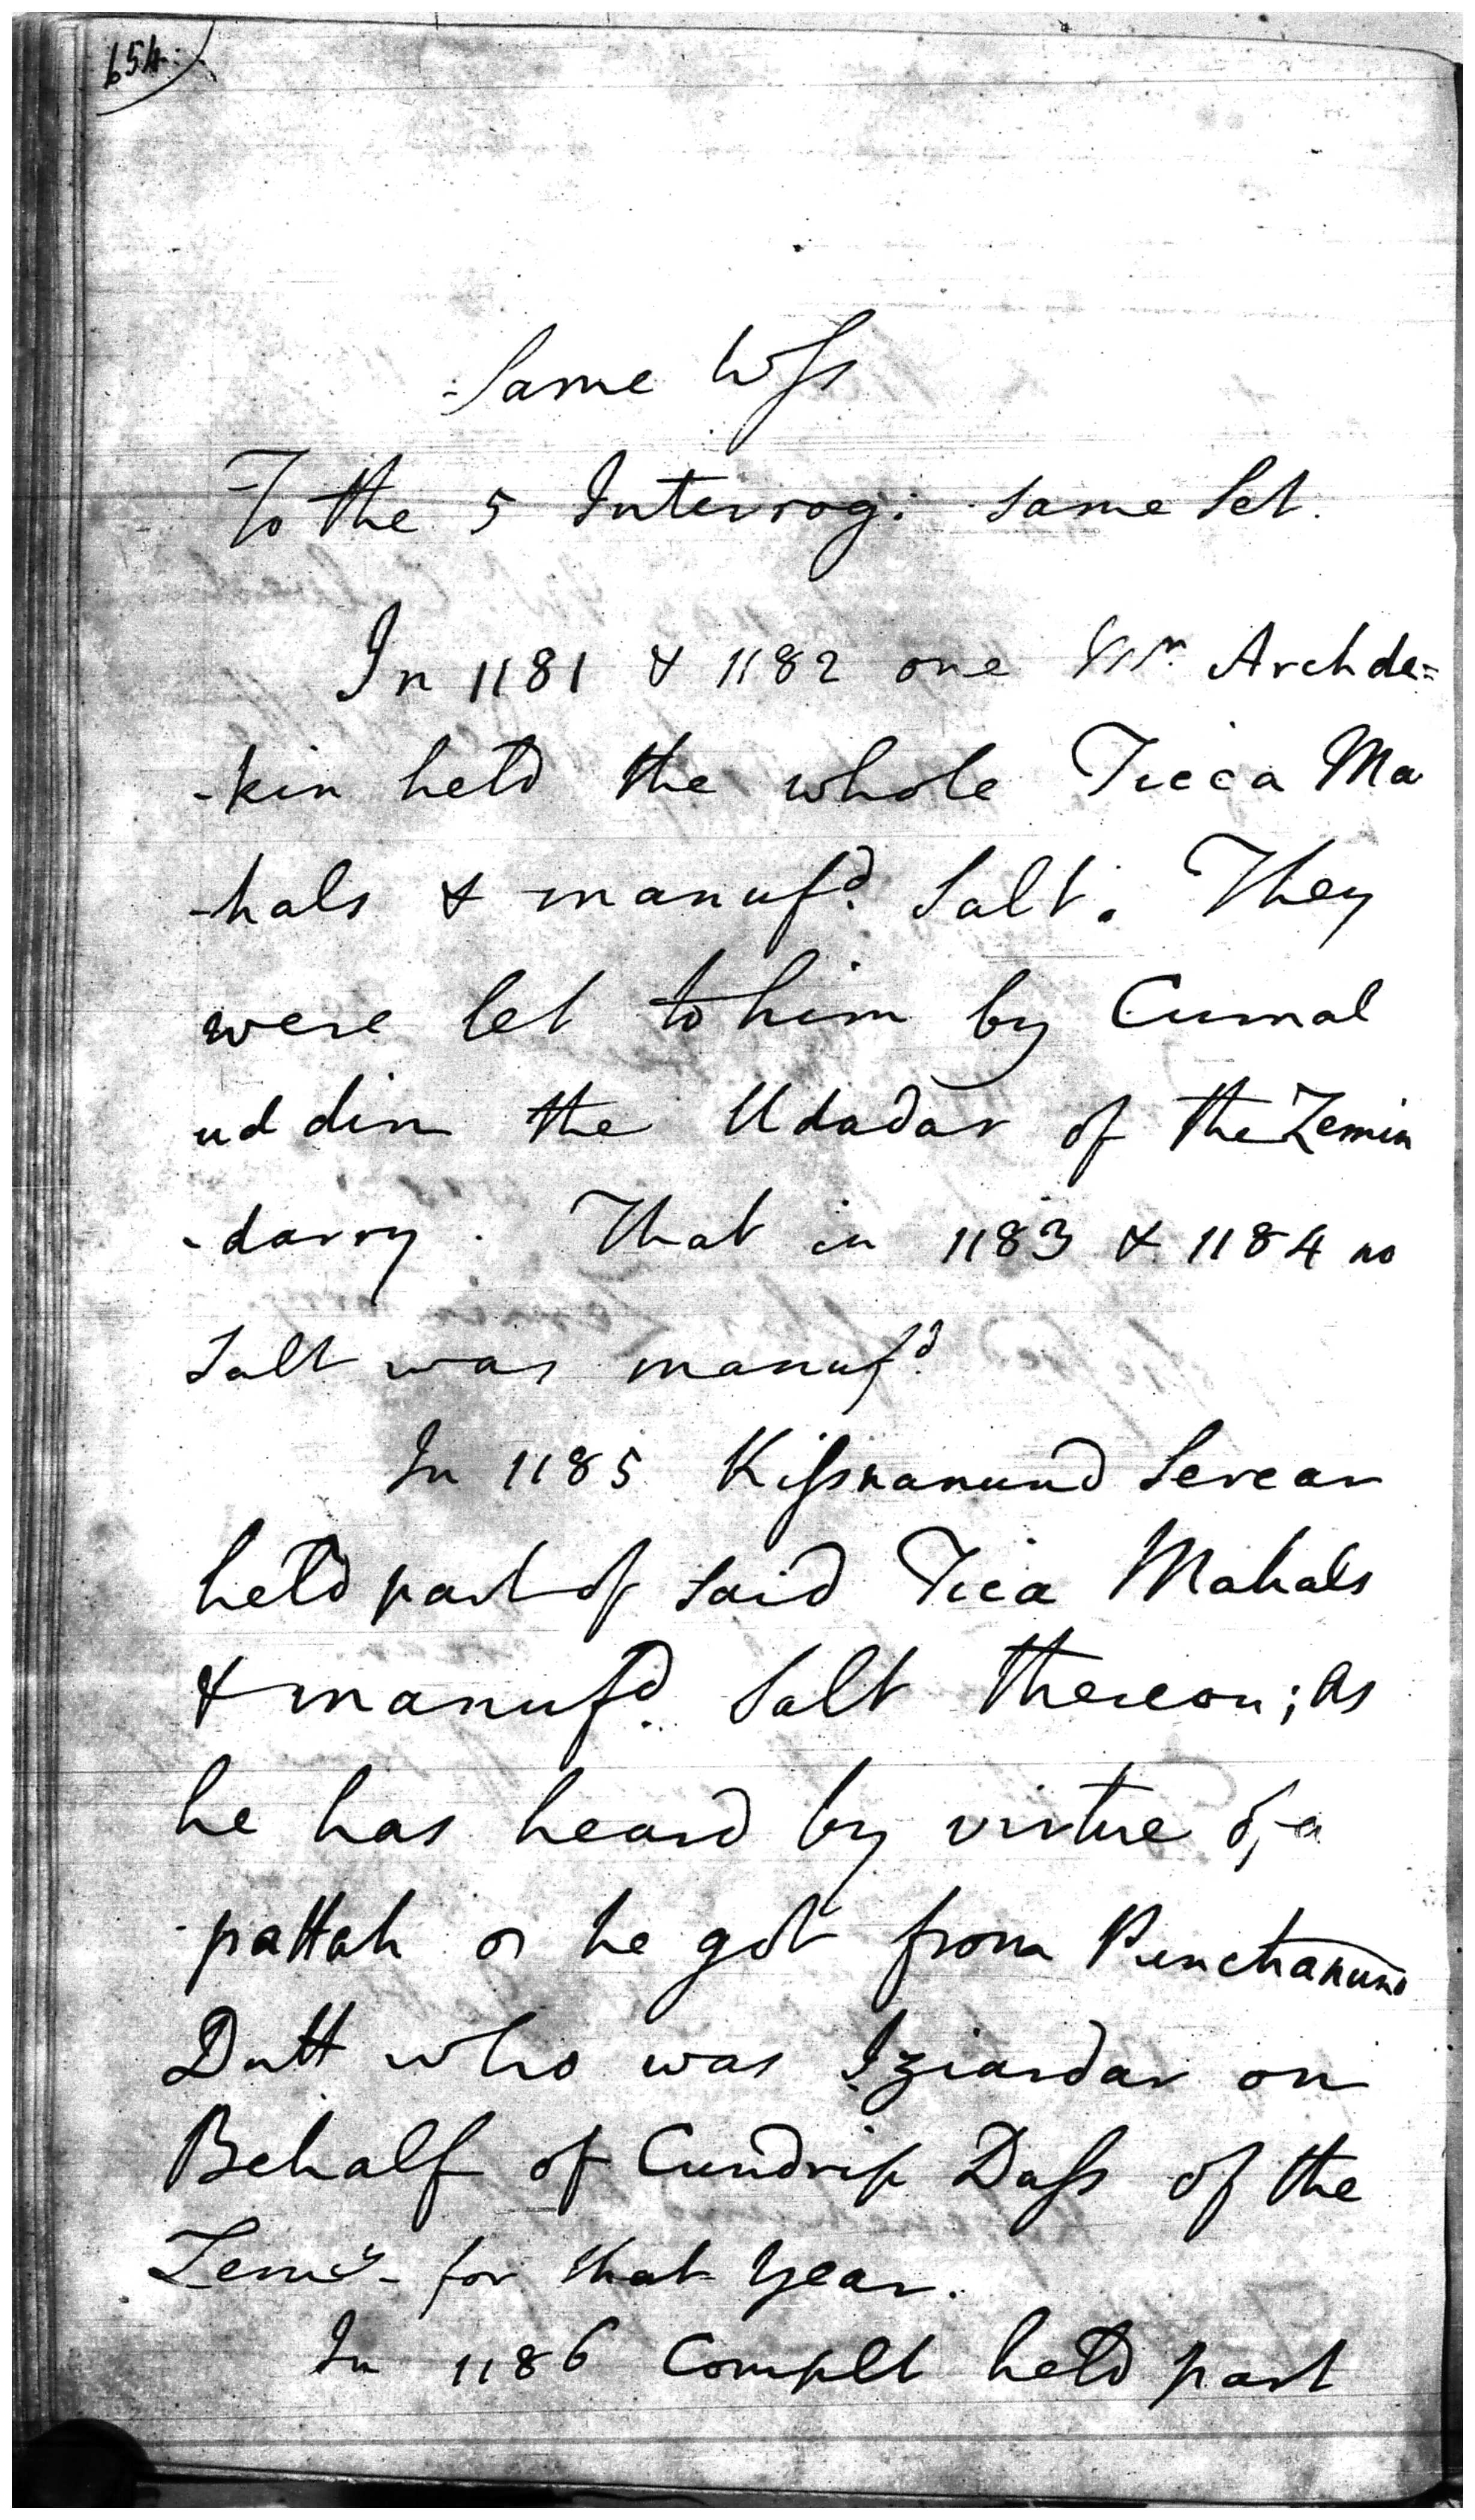 654
Same Wss
To the 5 Interrog: same Set.
In 1181 & 1182 one Mr. Archde=
-kin held the whole Ticca Ma
-hals & manufd. Salt. They
were let to him by Cumal
ud din the Udadar of the Zemin
-darry. That in 1183 & 1184 no
Salt was manufd.
In 1185 Kissnanund Sercar
held part of said Tica Mahals
& manufd. Salt thereon; as
he has heard by virtue of a
pattah he got from Punchanund
Dutt who was Iziardar on
Behalf of Cundrip Dass of the
Zemy- for that year.
In 1186 Complt held part